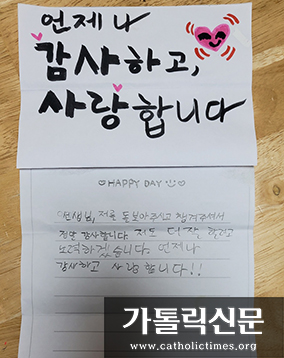 언제나
감사하고,
사랑합니다
♡HAPPY DAY ☺♡
선생님, 저를 돌보아주시고 챙겨주셔서
정말 감사합니다. 저도 더 잘 하려고
노력하겠습니다. 언제나
감사하고 사랑합니다!!
가톨릭신문
www.catholictimes.org